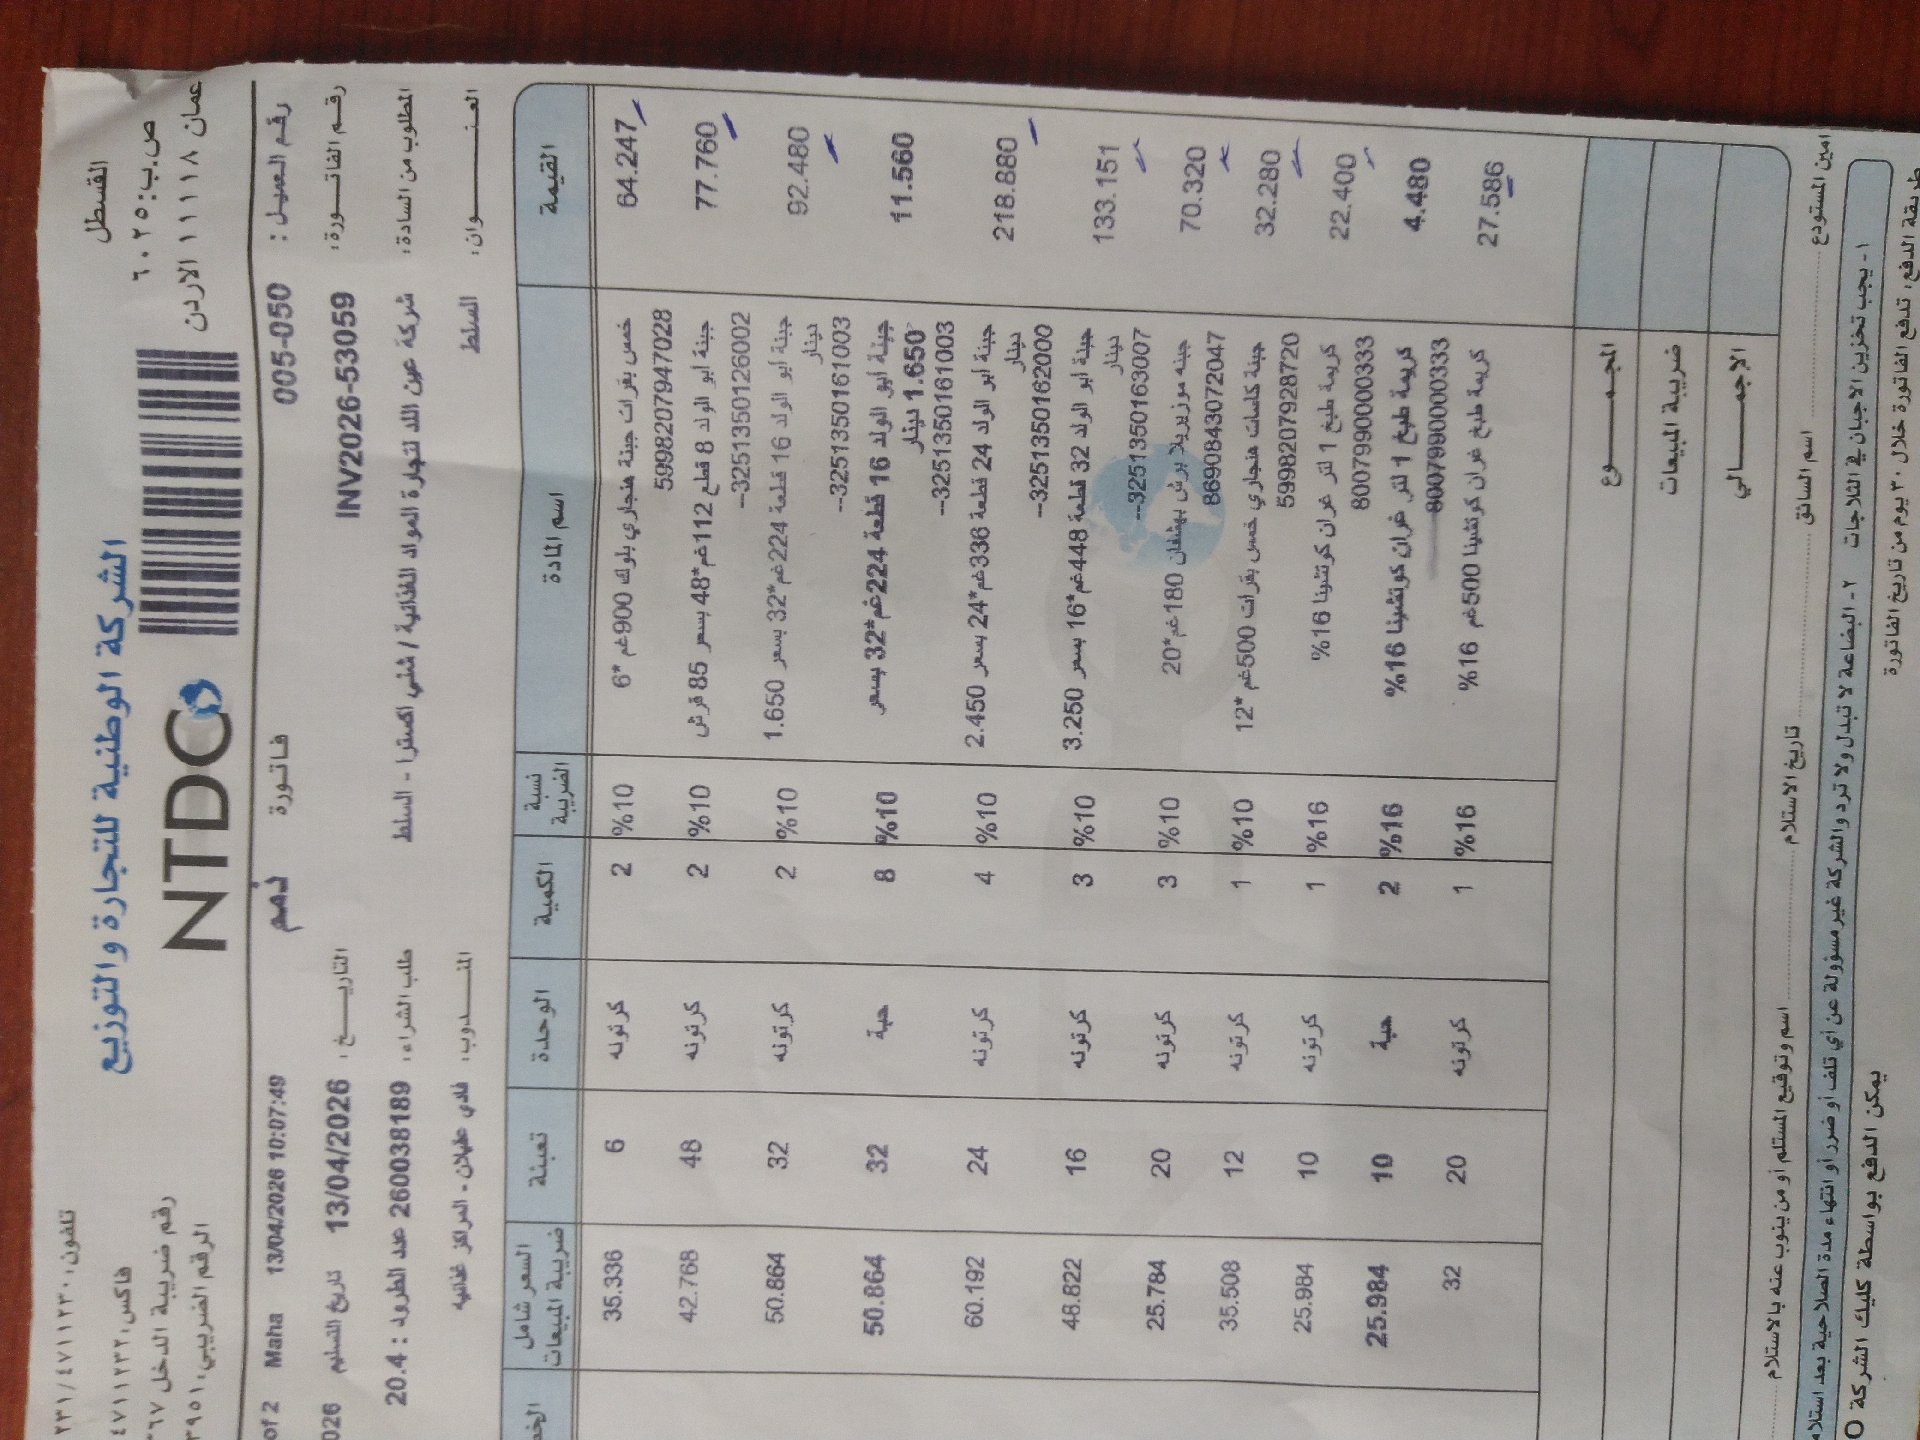 الشركة الوطنية للتجارة والتوزيع
NTDC
القسطل
ص.ب: ٦٠٢٥
عمان ١١١١٨ الاردن
تلفون: ٢٣١/٤٧١١٢٣٠
فاكس: ٤٧١١٢٣٢
رقم ضريبة الدخل ٦٧
الرقم الضريبي: ٣٩٥١
رقم العميل : 005-050 فاتورة ذمم Maha 13/04/2026 10:07:49 of 2
رقم الفاتورة: INV2026-53059 التاريخ : 13/04/2026 تاريخ التسليم 026
المطلوب من السادة: شركة عين اللد لتجارة المواد الغذائية / شني اكسترا - السلط طلب الشراء: 260038189 عدد الطرود : 20.4
العنوان: السلط المندوب: فادي عليان - المراكز غذائيه
القيمة اسم المادة نسبة الضريبة الكمية الوحدة تعبئة السعر شامل ضريبة المبيعات الخ
64.247 خمس بقرات جبنة هنجاري بلوك 900غم *6 %10 2 كرتونه 6 35.336
5998207947028
77.760 جبنة أبو الولد 8 قطع 112غم*48 بسعر 85 قرش %10 2 كرتونه 48 42.768
3251350126002--
92.480 جبنة أبو الولد 16 قطعة 224غم*32 بسعر 1.650 %10 2 كرتونه 32 50.864
دينار
3251350161003--
11.560 جبنة أبو الولد 16 قطعة 224غم*32 بسعر %10 8 حبة 32 50.864
1.650 دينار
3251350161003--
218.880 جبنة أبو الولد 24 قطعة 336غم*24 بسعر 2.450 %10 4 كرتونه 24 60.192
دينار
3251350162000--
133.151 جبنة أبو الولد 32 قطعة 448غم*16 بسعر 3.250 %10 3 كرتونه 16 48.822
دينار
3251350163007--
70.320 جبنه موزيريلا برش بهشفان 180غم*20 %10 3 كرتونه 20 25.784
8690843072047
32.280 جبنة كاسات هنجاري خمس بقرات 500غم *12 %10 1 كرتونه 12 35.508
5998207928720
22.400 كريمة طبخ 1 لتر غران كوتشينا 16% %16 1 كرتونه 10 25.984
8007990000333
4.480 كريمة طبخ 1 لتر غران كوتشينا 16% %16 2 حبة 10 25.984
8007990000333
27.586 كريمة طبخ غران كوتشينا 500غم 16% %16 1 كرتونه 20 32
المجموع
ضريبة المبيعات
الاجمالي
امين المستودع اسم السائق تاريخ الاستلام اسم وتوقيع المستلم أو من ينوب عنه بالاستلام
١- يجب تخزين الاجبان في الثلاجات ٢- البضاعة لا تبدل ولا ترد والشركة غير مسؤولة عن أي تلف أو ضرر أو انتهاء مدة الصلاحية بعد استلام
طريقة الدفع: تدفع الفاتورة خلال ٣٠ يوم من تاريخ الفاتورة
يمكن الدفع بواسطة كليك الشركة O